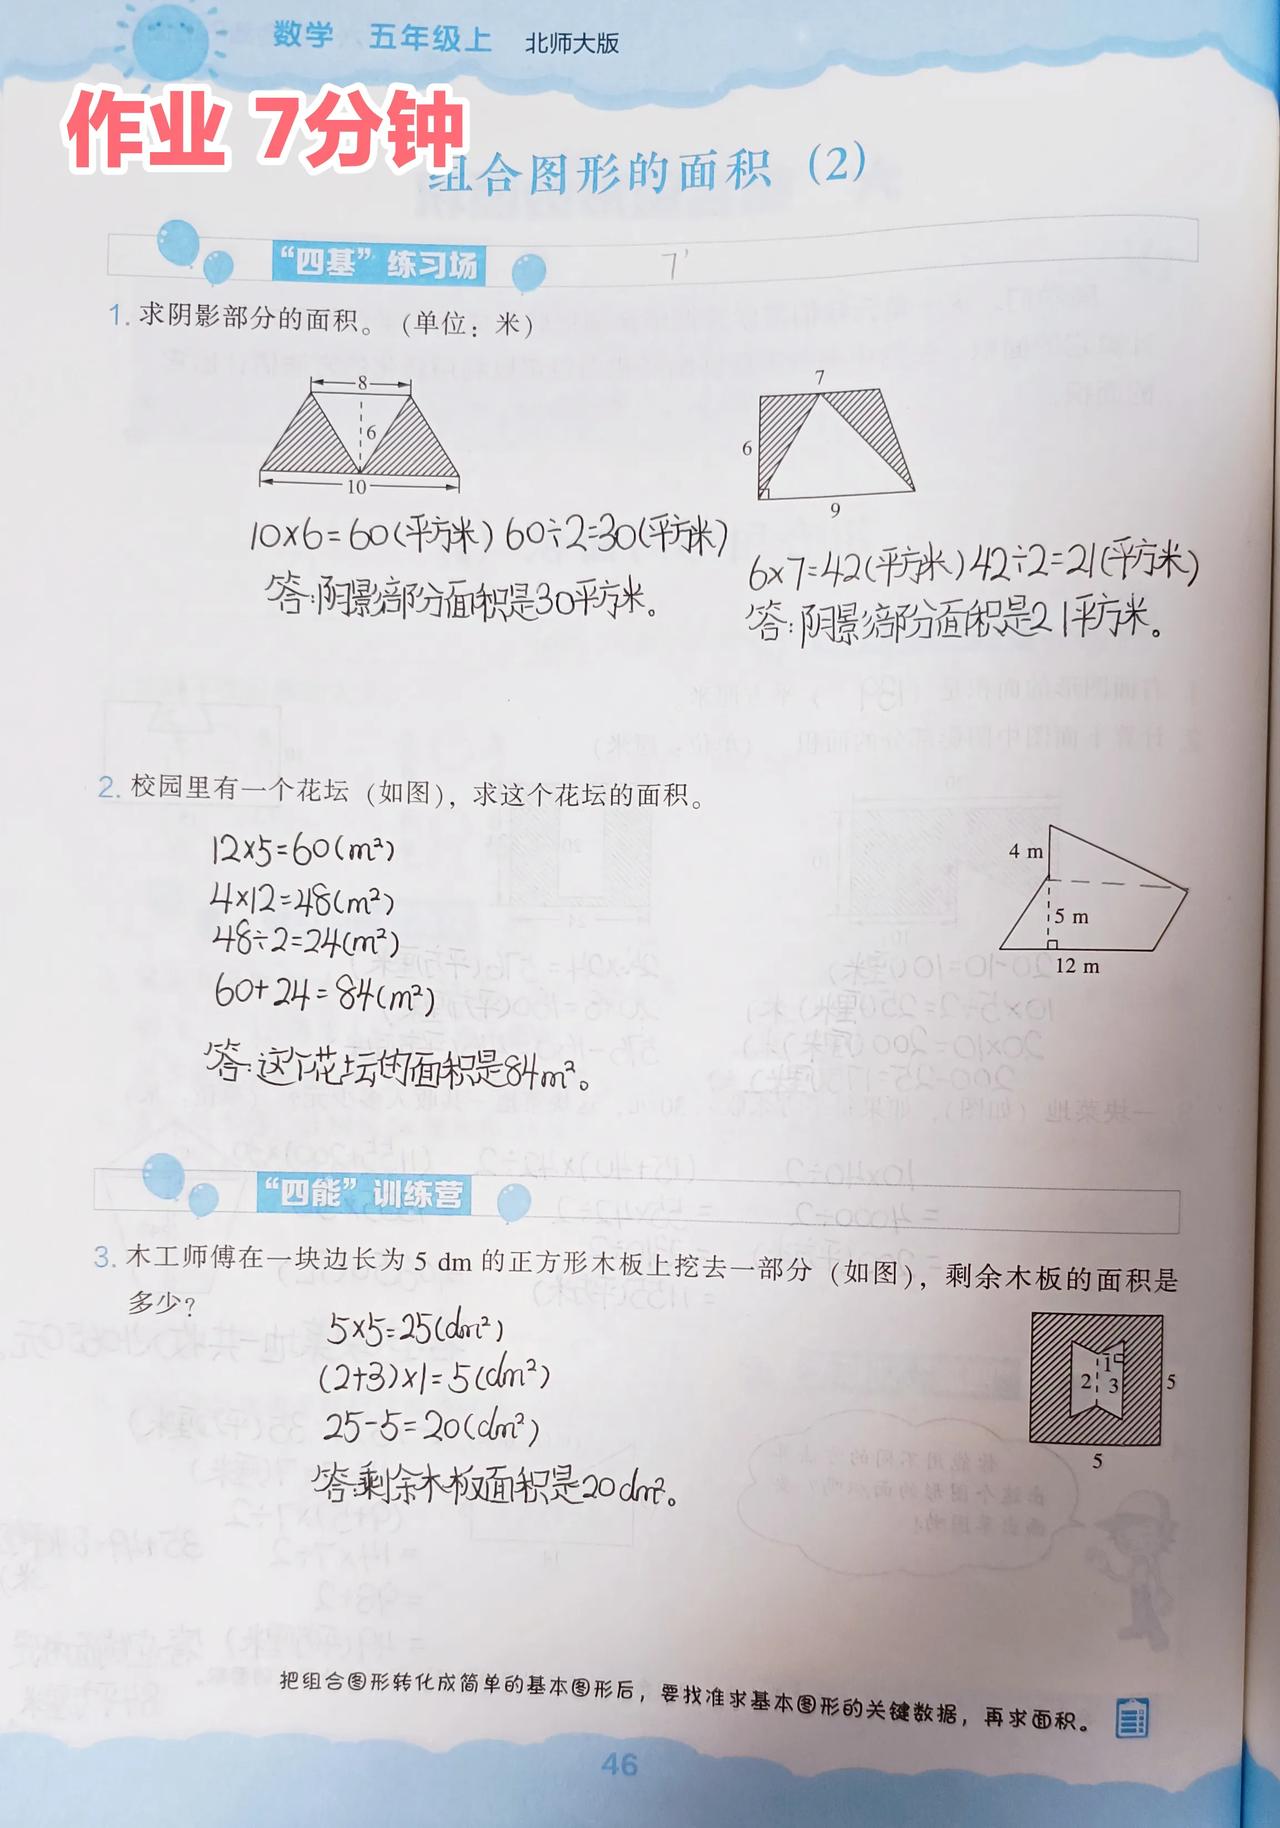 数学 五年级上 北师大版
作业 7分钟
组合图形的面积（2）
“四基”练习场
7'
1. 求阴影部分的面积。（单位：米）
8
6
10
7
6
9
10×6=60(平方米) 60÷2=30(平方米)
答:阴影部分面积是30平方米。
6×7=42(平方米) 42÷2=21(平方米)
答:阴影部分面积是21平方米。
2. 校园里有一个花坛（如图），求这个花坛的面积。
12×5=60(m²)
4×12=48(m²)
48÷2=24(m²)
60+24=84(m²)
答:这个花坛的面积是84m²。
4 m
5 m
12 m
“四能”训练营
3. 木工师傅在一块边长为 5 dm 的正方形木板上挖去一部分（如图），剩余木板的面积是
多少？
5×5=25(dm²)
(2+3)×1=5(dm²)
25-5=20(dm²)
答:剩余木板面积是20dm²。
1
2
3
5
5
把组合图形转化成简单的基本图形后，要找准求基本图形的关键数据，再求面积。
46